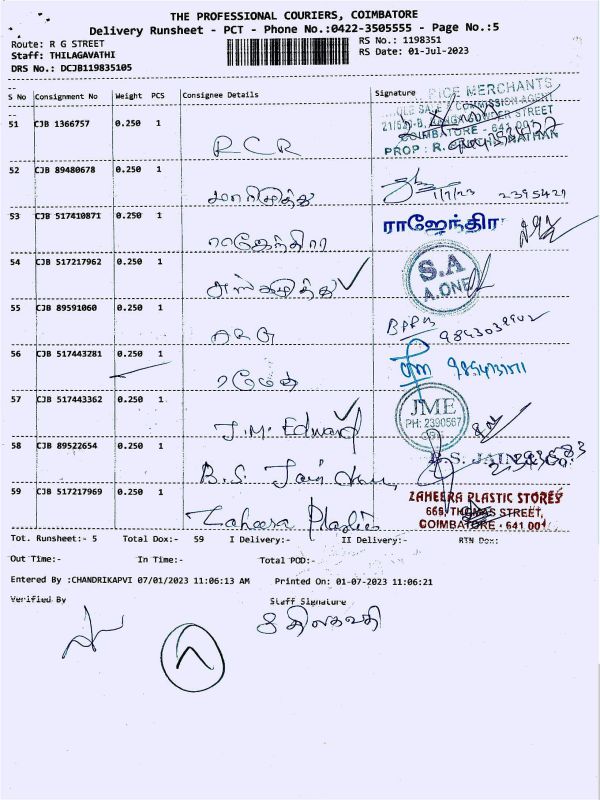 THE PROFESSIONAL COURIERS, COIMBATORE
Delivery Runsheet - PCT - Phone No.:0422-3505555 - Page No.:5
Route: R G STREET
Staff: THILAGAVATHI
DRS No.: DCJB119835105
RS No.: 1198351
RS Date: 01-Jul-2023
S No Consignment No Weight PCS Consignee Details Signature
RICE MERCHANTS
COMMISSION AGENT
STREET
COIMBATORE - 641 001
PROP : R.
51 CJB 1366757 0.250 1 R C R
52 CJB 89480678 0.250 1 மாரிமுத்து 1/7/23 2395421
53 CJB 517410871 0.250 1 ராஜேந்திரா ராஜேந்திரா
54 CJB 517217962 0.250 1 S.A A.ONE
55 CJB 89591060 0.250 1
56 CJB 517443281 0.250 1 ரமேஷ்
57 CJB 517443362 0.250 1 J.M. Edward JME PH: 2390567
58 CJB 89522654 0.250 1 B.S. Jain B.S. JAIN
59 CJB 517217969 0.250 1 Zaheera Plastics
ZAHEERA PLASTIC STORES
669, THOMAS STREET,
COIMBATORE - 641 001
Tot. Runsheet:- 5 Total Dox:- 59 I Delivery:- II Delivery:- RTN Dox:
Out Time:- In Time:- Total POD:-
Entered By :CHANDRIKAPVI 07/01/2023 11:06:13 AM Printed On: 01-07-2023 11:06:21
Verified By Staff Signature
திலகவதி